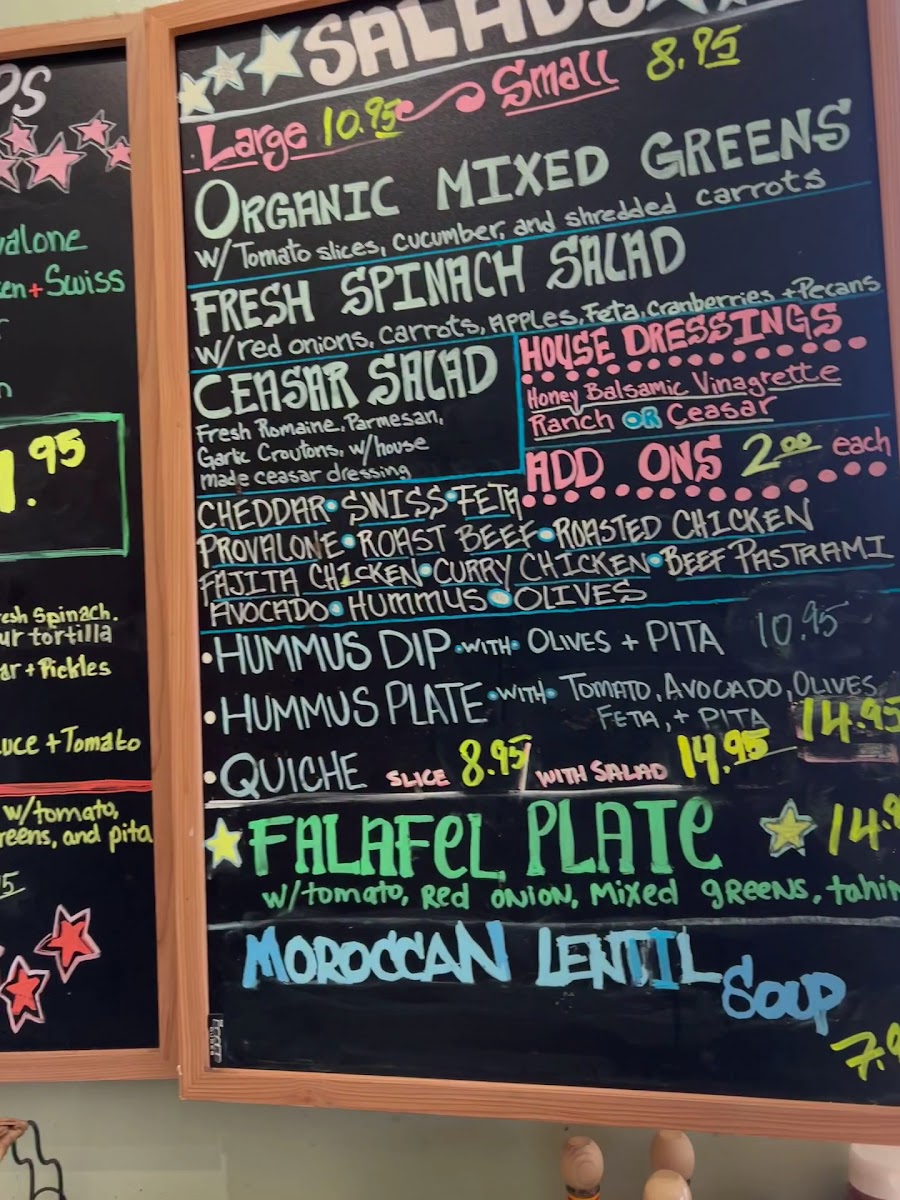 valone
+Swiss
.95
Spinach.
tortilla
+ Pickles
+Tomato
w/tomato,
and pita
SALADS
Large 10.95 Small 8.95
ORGANIC MIXED GREENS
w/Tomato slices, cucumber, and shredded carrots
FRESH SPINACH SALAD
w/red onions, carrots, Apples, Feta, Cranberries + Pecans
CEASAR SALAD
Fresh Romaine, Parmesan,
Garlic Croutons, w/house
made ceasar dressing
HOUSE DRESSINGS
Honey Balsamic Vinagrette
Ranch OR Ceasar
ADD ONS 2.00 each
CHEDDAR • SWISS • FETA
PROVALONE • ROAST BEEF • ROASTED CHICKEN
FAJITA CHICKEN • CURRY CHICKEN • BEEF PASTRAMI
AVOCADO • HUMMUS • OLIVES
• HUMMUS DIP • WITH • OLIVES + PITA 10.95
• HUMMUS PLATE • WITH • TOMATO, AVOCADO, OLIVES
FETA, + PITA 14.95
• QUICHE SLICE 8.95 / WITH SALAD 14.95
FALAFEL PLATE 14.9
w/tomato, Red ONION, Mixed greens, tahin
MOROCCAN LENTIL
Soup
7.9